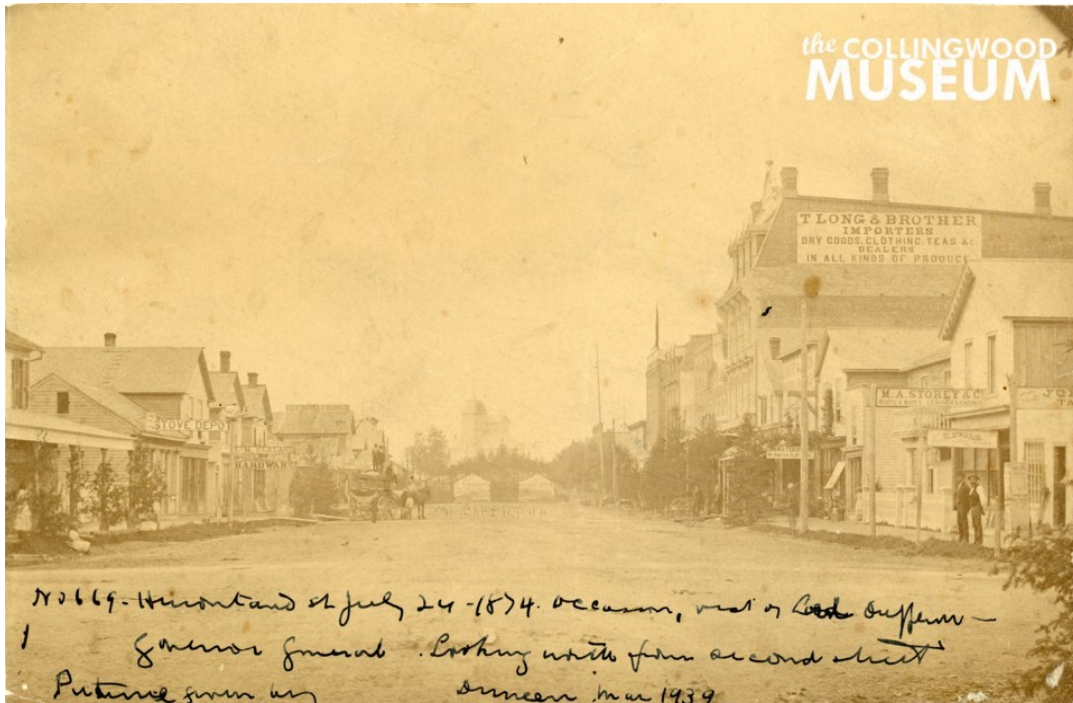 the COLLINGWOOD
MUSEUM
T LONG & BROTHER
IMPORTERS
DRY GOODS, CLOTHING, TEAS &c.
DEALERS
IN ALL KINDS OF PRODUCE
STOVE DEPOT
HARDWAR
M.A. STOREY & C
No 669 - Hurontario st July 24 - 1874. occasion, visit of Lord Dufferin -
Governor General. Looking north from second street
Picture given by Duncan Mar 1939